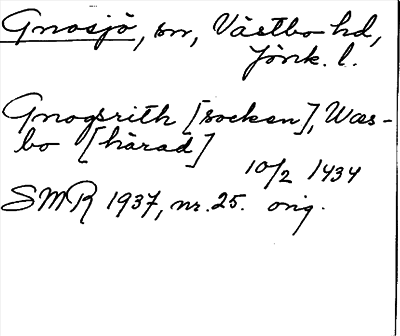 Gnosjö, sn, Västbo hd,
Jönk. l.
Gnogsrith [socken], Wæs-
bo [härad]
10/2 1434
SMR 1937, nr. 25. orig.